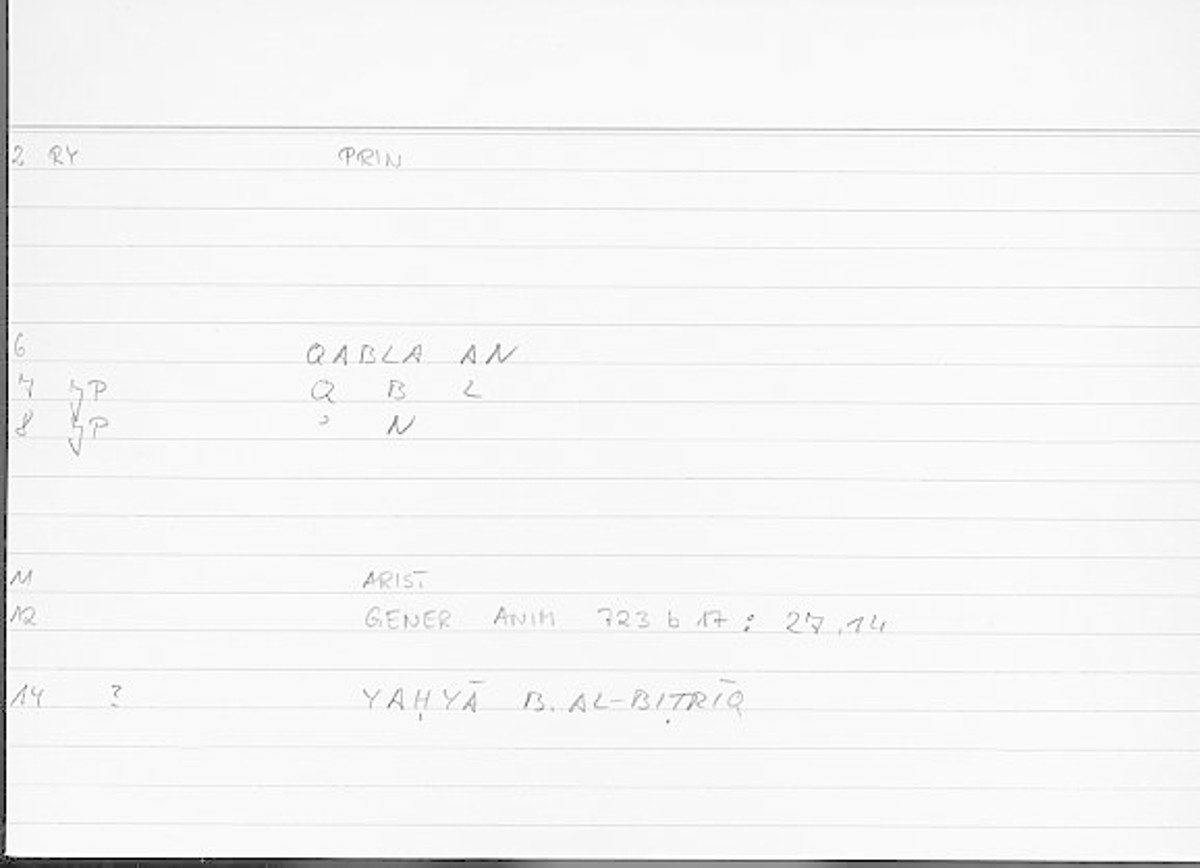 2 RY PRIN
6 QABLA AN
7 P Q B L
8 P ʾ N
11 ARIST
12 GENER ANIM 723 b 17 : 27.14
14 ? YAḤYĀ B. AL-BIṬRĪQ